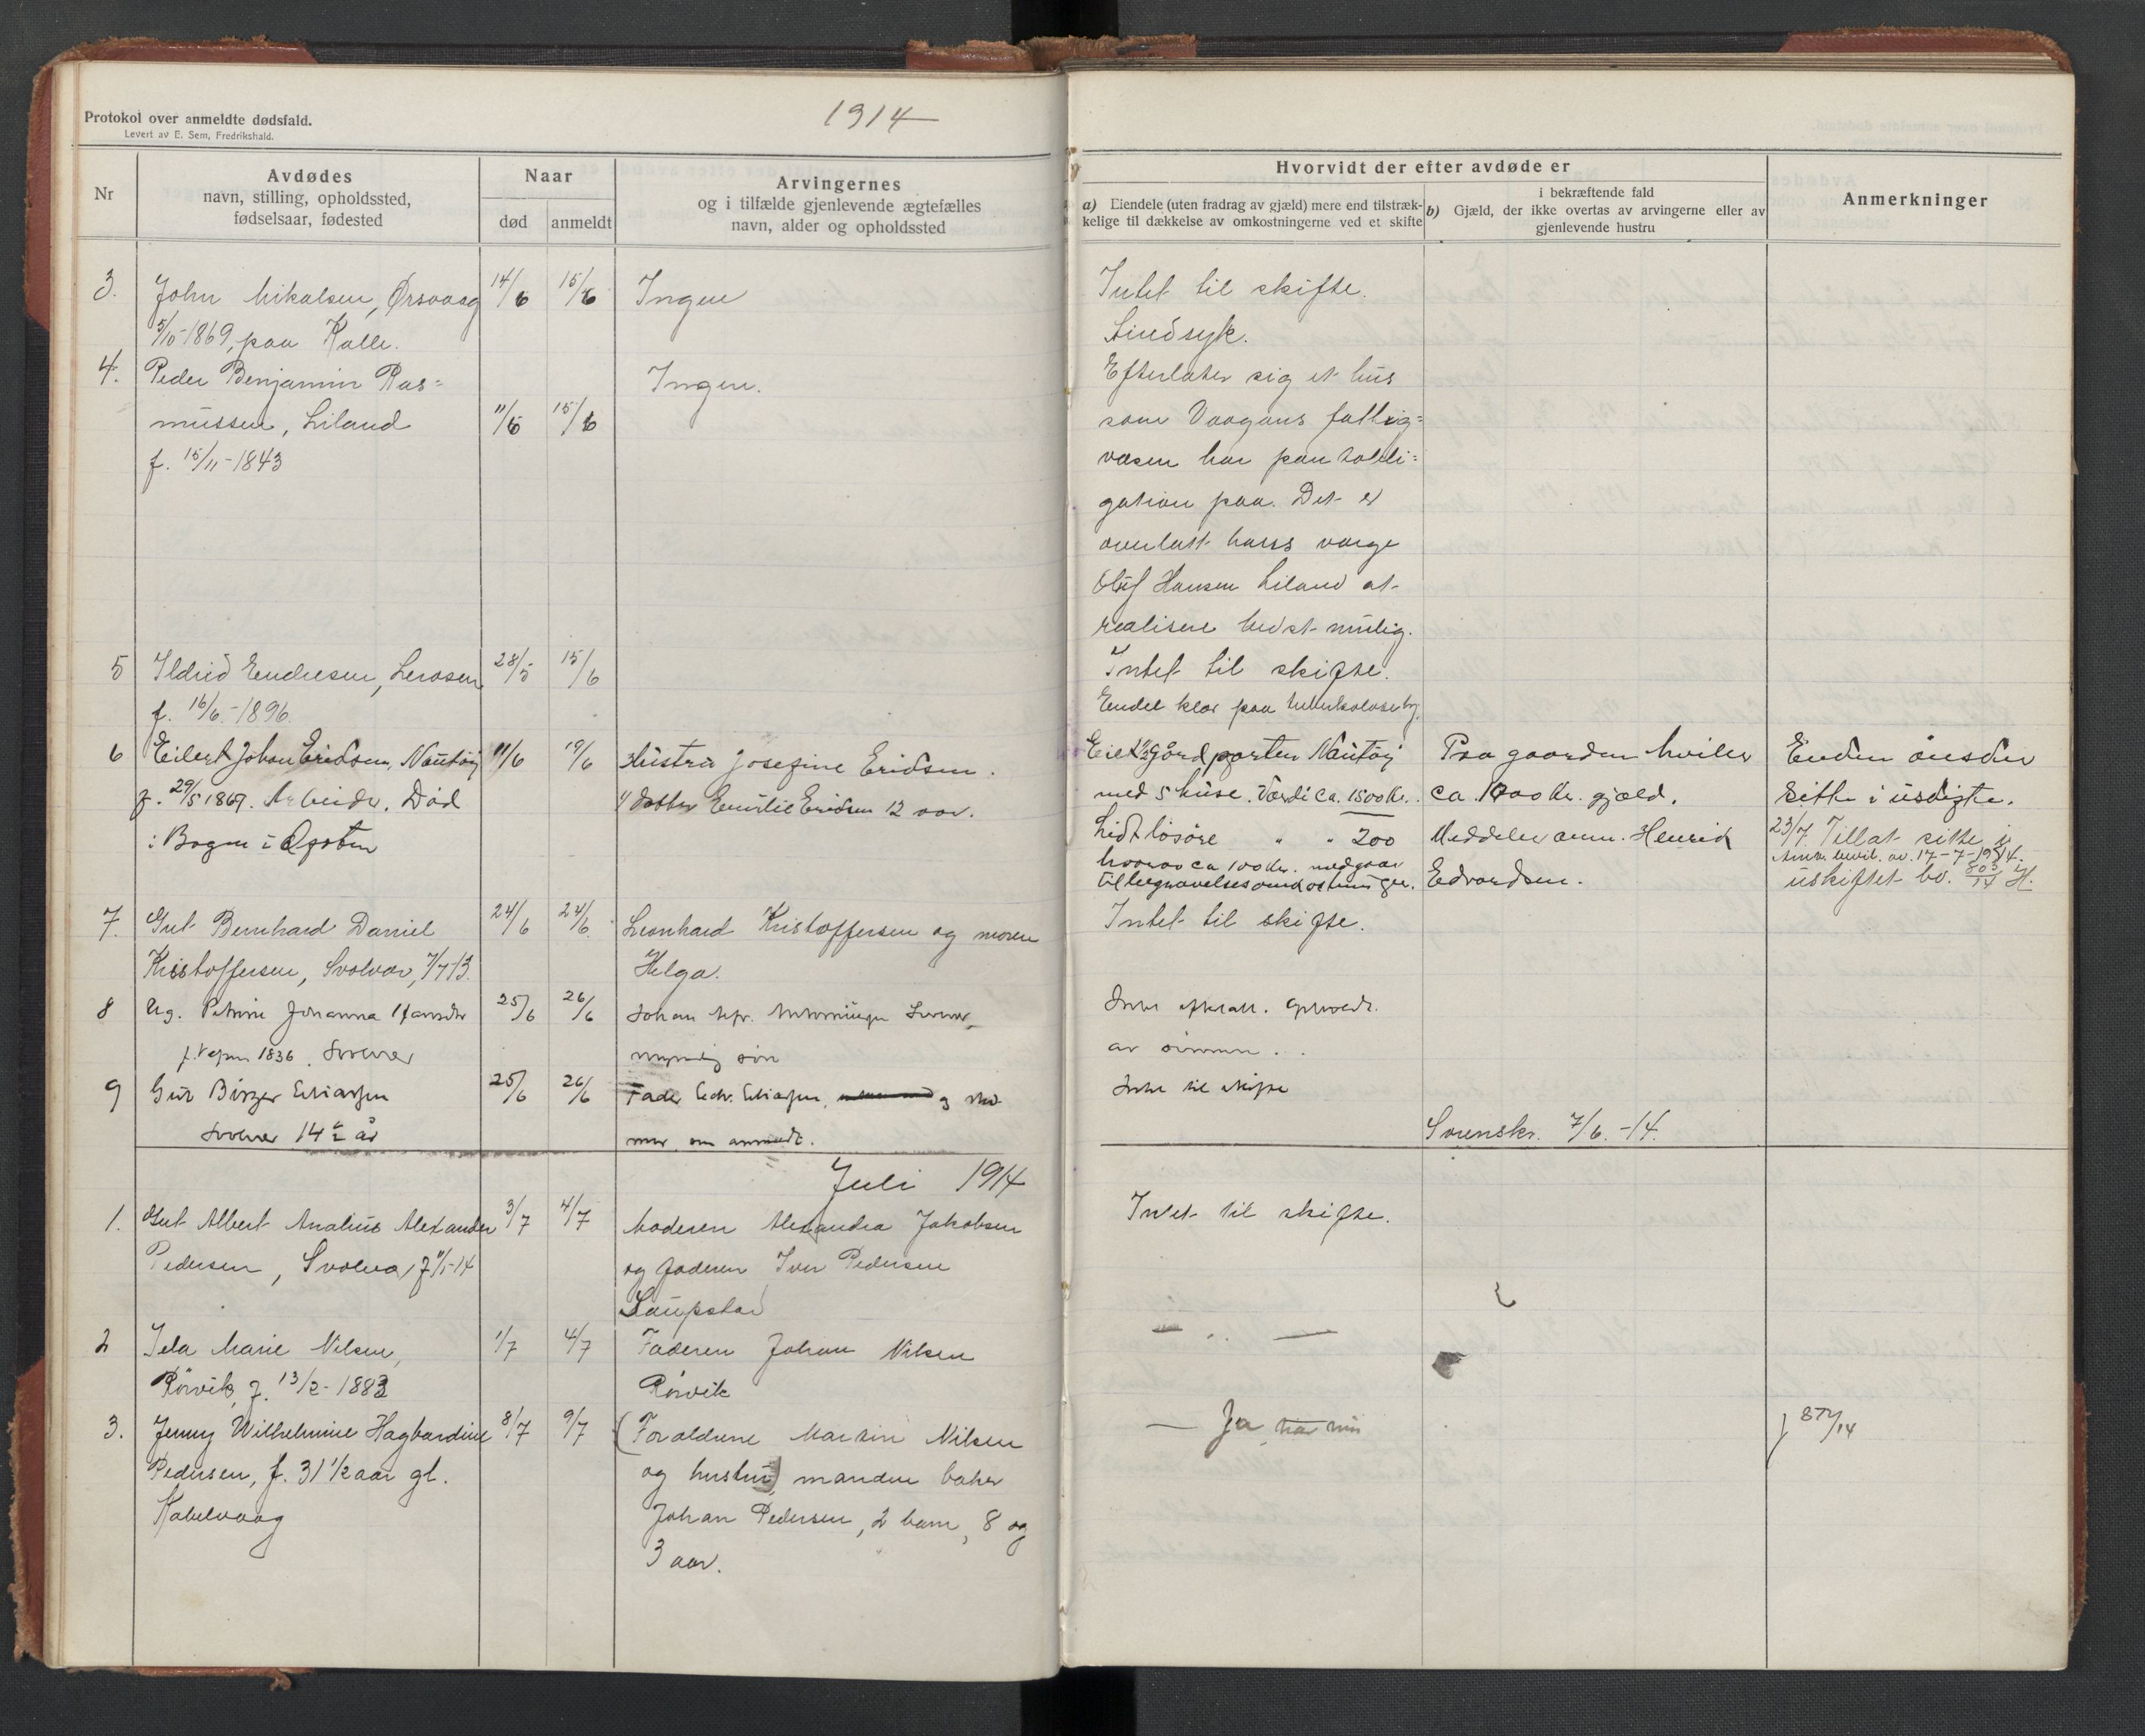 Protokol over anmeldte dødsfald.
Levert av E. Sem, Fredrikshald.
1914
Nr
Avdødes
navn, stilling, opholdssted,
fødselsaar, fødested
Naar
død
anmeldt
Arvingernes
og i tilfælde gjenlevende ægtefælles
navn, alder og opholdssted
Hvorvidt der efter avdøde er
a) Eiendele (uten fradrag av gjæld) mere end tilstræk-
kelige til dækkelse av omkostningerne ved et skifte
i bekræftende fald
b) Gjæld, der ikke overtas av arvingerne eller av
gjenlevende hustru
Anmerkninger
3. John Mikalsen, Ørsvaag 14/6 15/6 Ingen Intet til skifte.
5/10-1869, paa Kalle. Sindsyk.
4. Peder Benjamin Ras= Ingen. Efterlater sig et hus
mussen, Liland 11/6 15/6 som Vaagans fattig=
f. 15/11-1843 væsen har pantobli=
gation paa. Det er
overlatt hans værge
Oluf Hansen Liland at
realisere bedst mulig.
5 Ildrid Endresen, 28/5 15/6 Intet til skifte.
f. 16/6.-1896. Endel klær paa
6 Eilert Johan Eridsen, Nautøy 11/6 19/6 Hustru Josefine Eridsen. Nautøy Paa gaarden hviler Enken ønsker
f. 29/5 1869. Arbeider. Død 1 datter Emilie Eridsen 12 aar. med 5 huse. Værdi ca. 1500 Kr. ca. 1000 Kr. gjæld. sitte i uskifte.
i Bogen i Lidt løsøre " " 200 Meddeler anm. Henrik 23/7 Tillat sitte i
hvorav ca 100 Kr. medgaar 17-7-1914.
til begravelsesomkostninger. Edvardsen. uskiftet bo. 803/14 H.
7. Gut Bernhard Daniel 24/6 24/6. Leonhard Kristoffersen og moren Intet til skifte.
Kristoffersen, Svolvær, 7/7-13. Helga.
8 Ug. Petrine Johanna 25/6 26/6 Johan
1836. Svolvær myndig søn av sønnen.
9 Gut Birger Eliassen 25/6 26/6 Fader Edv. Eliassen, og Intet til skifte
Svolvær 14 1/2 år som anmeldt. Svenskr. 7/6.-14.
Juli 1914
1. Gut Albert Analius Alexander 3/7 4/7 Moderen Alexandra Jakobsen Intet til skifte.
Pedersen, Svolvær, og faderen Iver Pedersen
Laupstad
2 Marie Nilsen, 1/7 4/7 Faderen Johan Nilsen — " —
Rørvik, f. 13/2-1883 Rørvik
3. Jenny Wilhelmine Hagbardine 8/7 9/7 (Forældrene Martin Nilsen — Ja 872/14
Pedersen, f. 31 1/2 aar gl. og hustru) manden baker
Kabelvaag Johan Pedersen, 2 barn, 8 og
3 aar.